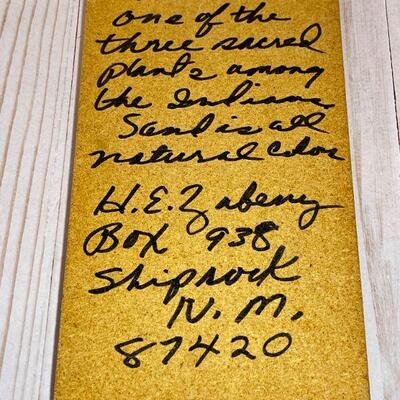 one of the
three sacred
plants among
the Indians.
Sand is all
natural color
H.E. Zabeny
Box 938
Shiprock
N. M.
87420